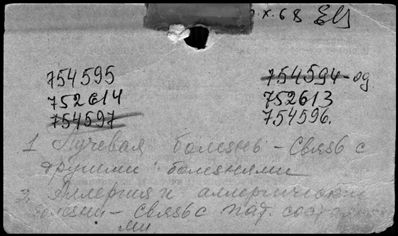 .X.68
754595 754594-од
752614 752613
754597 754596.
1 Лучевая болезнь - Связь с
другими болезнями
3. Аллергия и аллергические
болезни - Связь с пат. состояния
ми